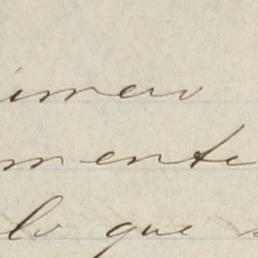 imero
mente
lo que